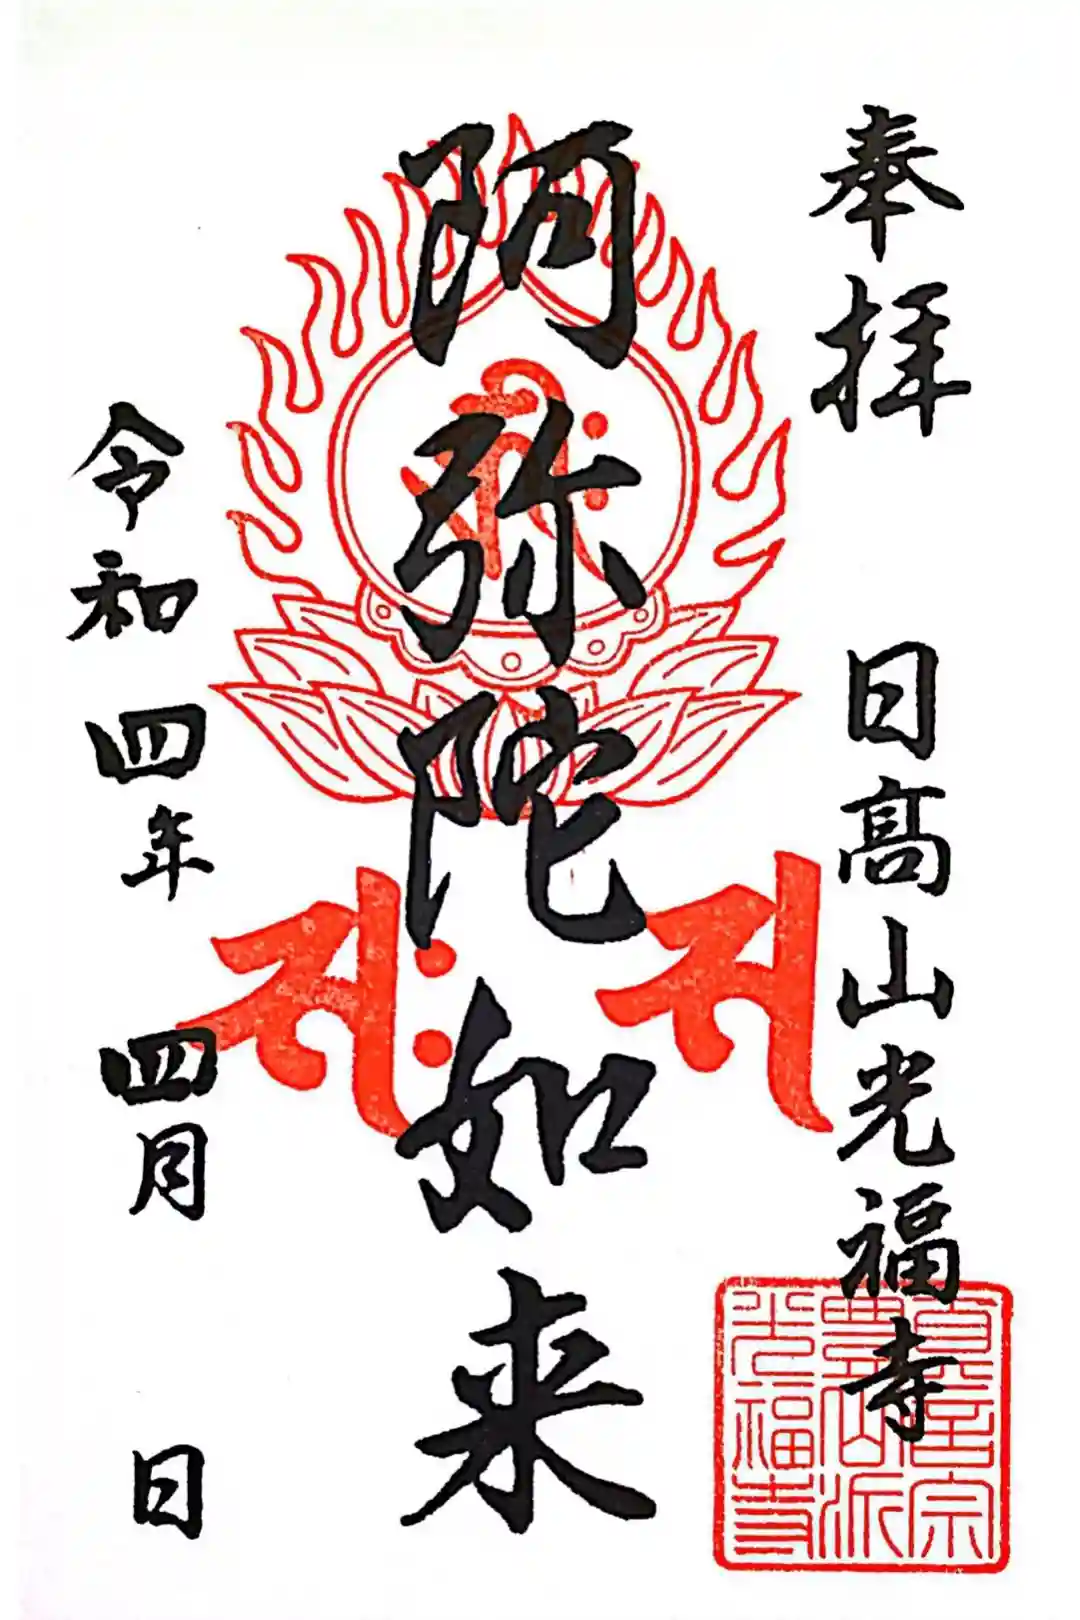 奉拝
日髙山光福寺
阿弥陀如来
令和四年 四月 日
真言宗
豊山派
光福寺